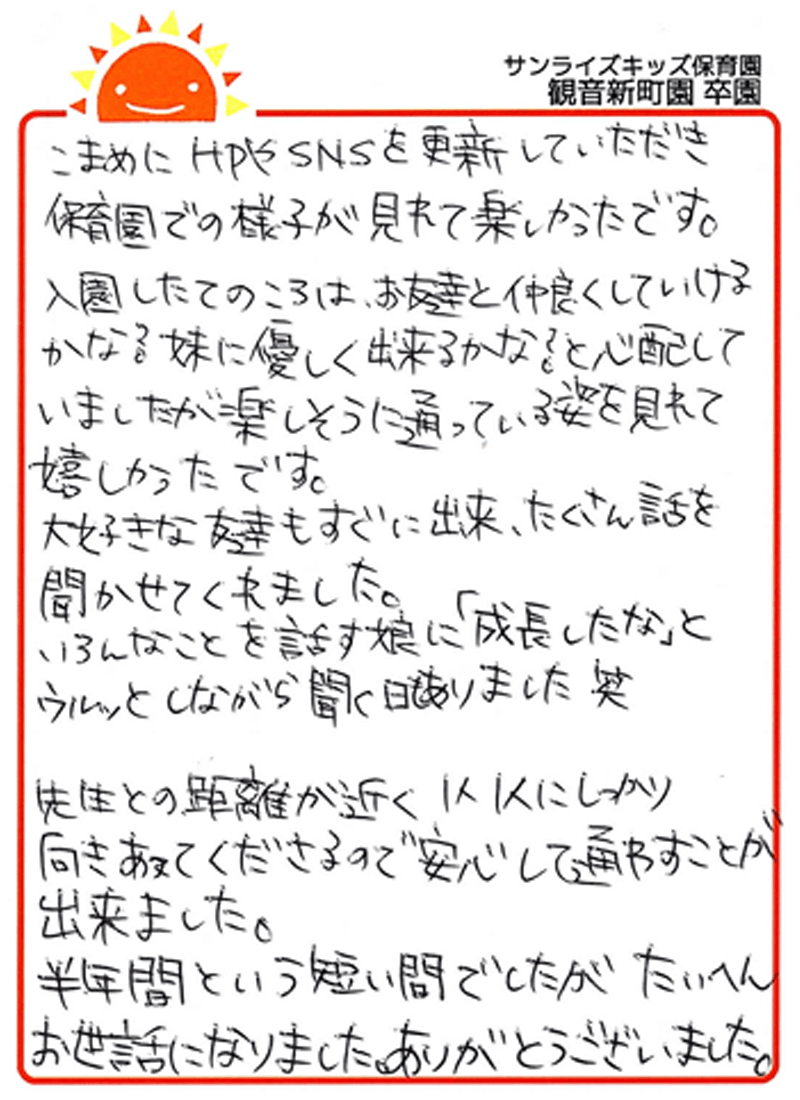 サンライズキッズ保育園
観音新町園 卒園
こまめにHPやSNSを更新していただき
保育園での様子が見れて楽しかったです。
入園したてのころは、お友達と仲良くしていける
かな?妹に優しく出来るかな?と心配して
いましたが楽しそうに通っている姿を見れて
嬉しかったです。
大好きな友達もすぐに出来、たくさん話を
聞かせてくれました。
いろんなことを話す娘に「成長したな」と
ウルッとしながら聞く日もありました 笑
先生との距離が近く 1人1人にしっかり
向きあってくださるので安心して通わすことが
出来ました。
半年間という短い間でしたが たいへん
お世話になりました。ありがとうございました。